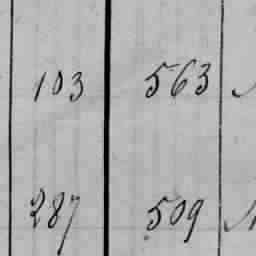 103 563
287 509